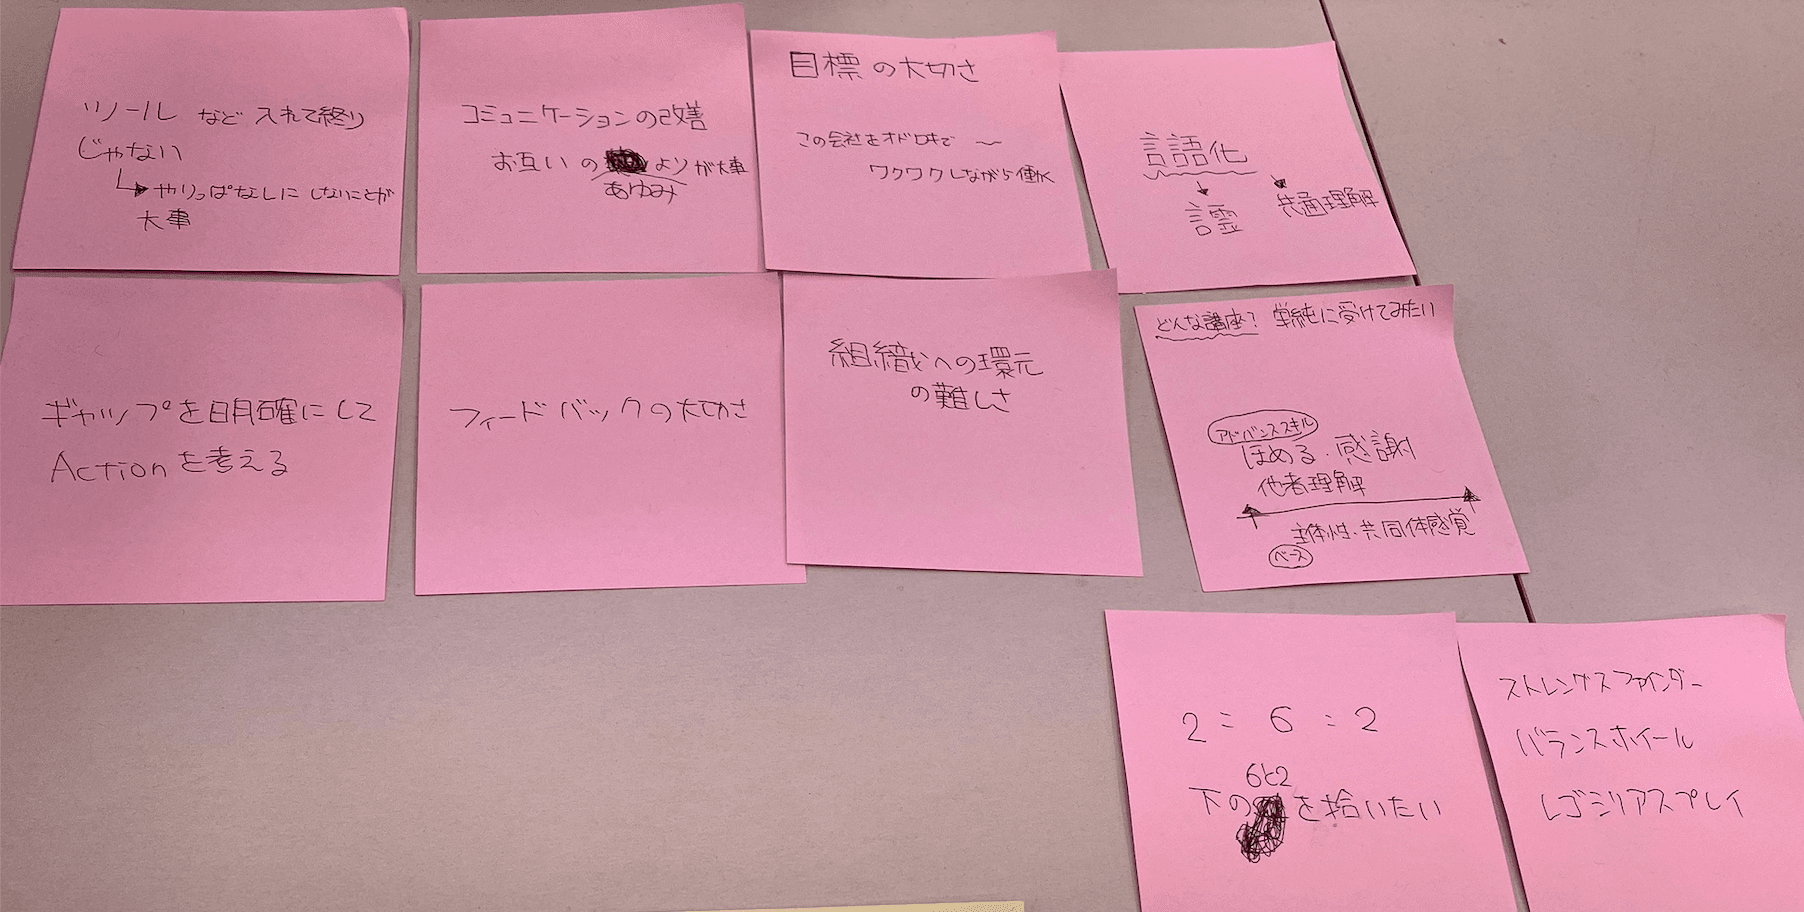 ツールなど入れて終り
じゃない
やりっぱなしにしないことが
大事
コミュニケーションの改善
お互いのよりが大事
あゆみ
目標の大切さ
この会社をオドロキで〜
ワクワクしながら働く
言語化
言霊
共通理解
ギャップを明確にして
Actionを考える
フィードバックの大切さ
組織への環元
の難しさ
どんな講座? 単純に受けてみたい
アドバンススキル
ほめる・感謝
他者理解
主体性・共同体感覚
ベース
2:6:2
6と2
下のを拾いたい
ストレングスファインダー
バランスホイール
レゴシリアスプレイ